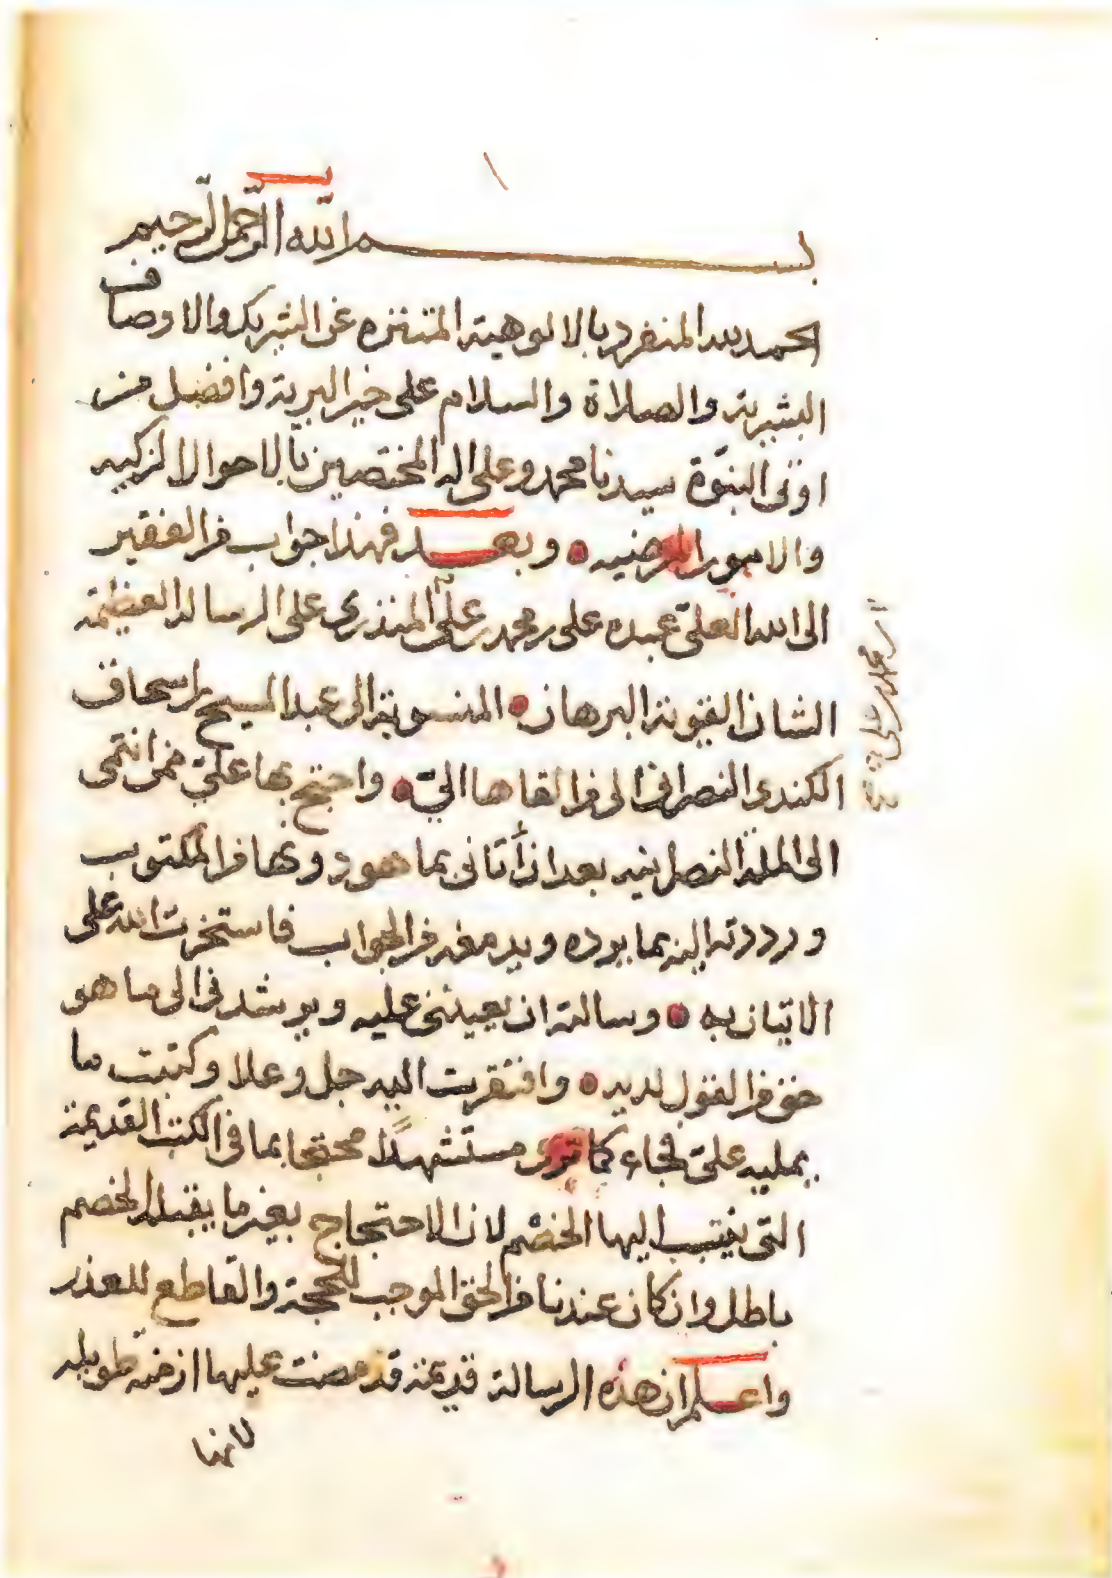 بسم الله الرحمن الرحيم
الحمد لله المنفرد بالالوهية المتنزه عن الشريك والاوصاف
البشرية والصلاة والسلام على خير البرية وافضل من
اوتى النبوّة سيدنا محمد وعلى اله المختصين بالاحوال الزكيه
والامور المرضيه وبعد فهذا جواب من الفقير
الى الله العلي عبده على بن محمد بن على المنذري على الرساله العظيمة
الشان القوية البرهان المنسوبة الى عبد المسيح بن اسحاق
الكندى النصراني القاها اليّ واحتج بها عليّ ممن انتمى
الى الملة النصرانيه بعد ان أتانى بما هو دونها من المكتوب
ورددته اليه بما يرده ويدمغه من الجواب فاستخرت الله على
الاتيان به وسالته ان يعينني عليه ويرشدني الى ما هو
حق من القول لديه وافتقرت اليه جل وعلا وكتبت ما
يمليه عليّ فجاء كما ترى مستشهدًا محتجا بما في الكتب القديمة
التى ينتسب اليها الخصم لان الاحتجاج بغير ما يقبله الخصم
باطل وان كان عندنا من الحق الموجب للحجة والقاطع للعذر
واعلم ان هذه الرسالة قديمة قد مضت عليها ازمنة طويله
لانها
محمد بن على